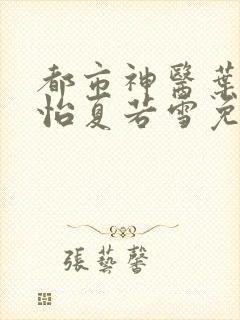 都市神醫葉
怡夏若雪免
張藝馨